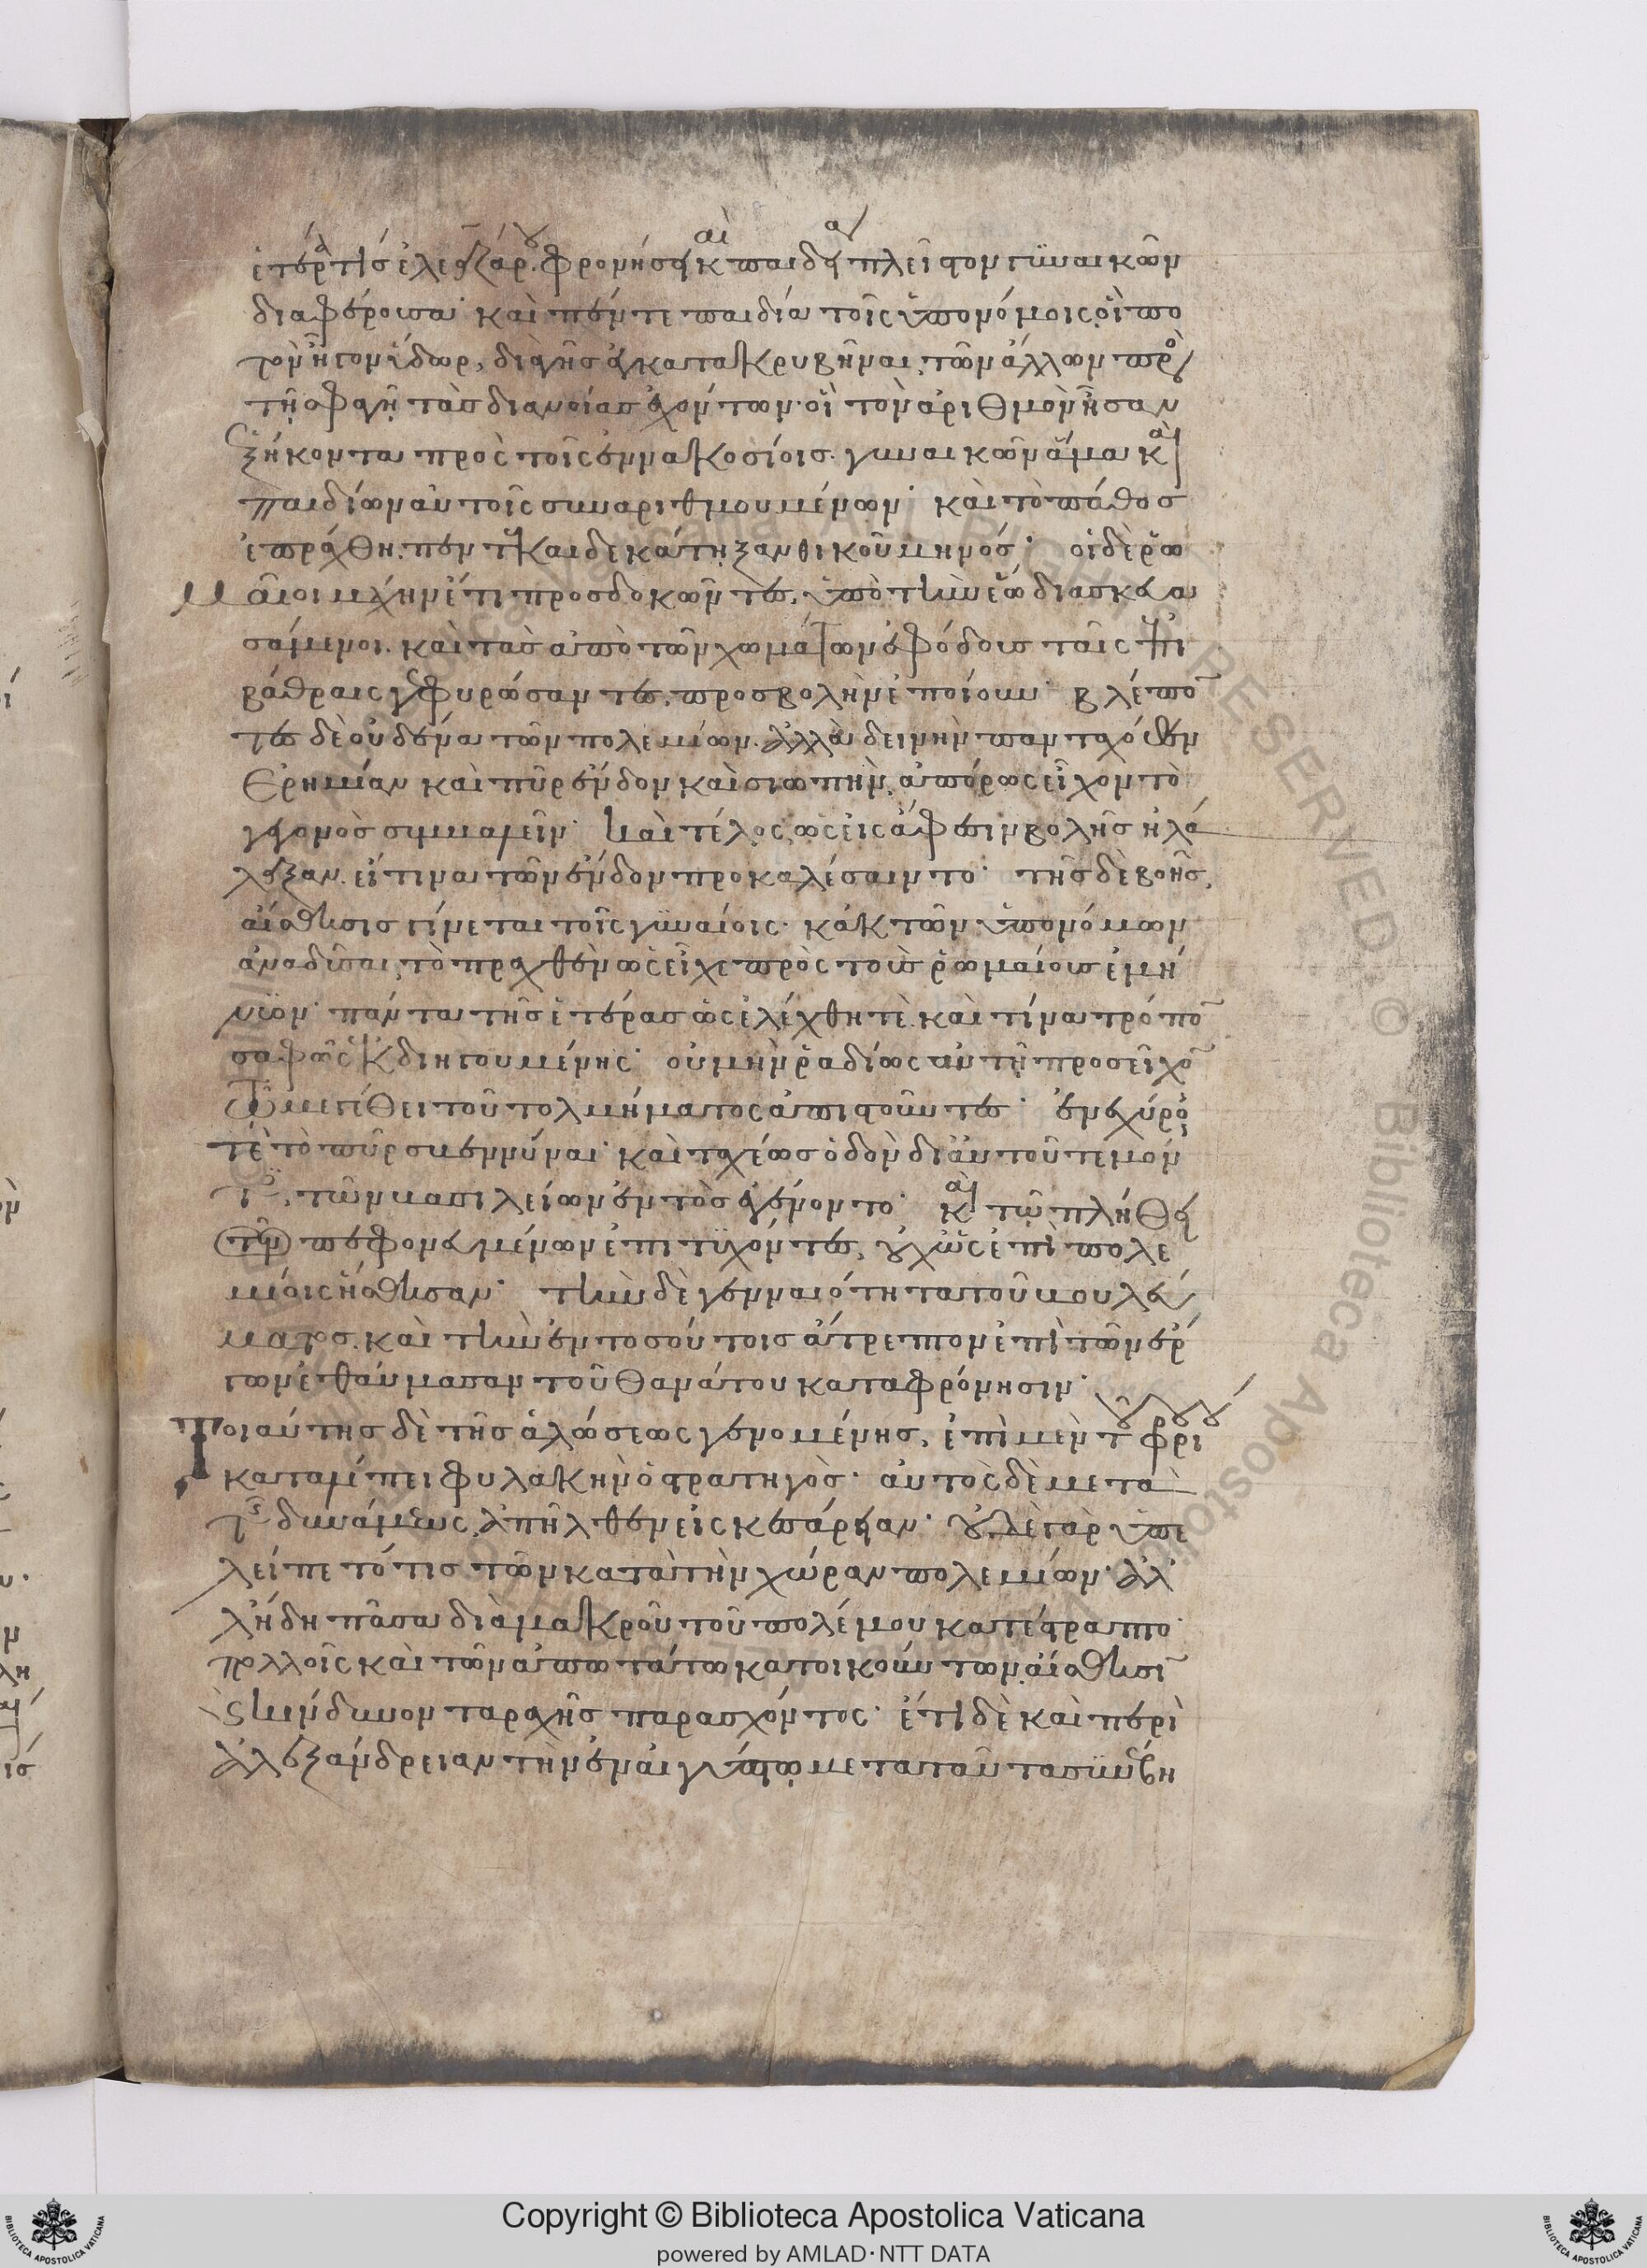 ἑτέρα τις ἐλεαζάρου. φρονήσει καὶ παιδείᾳ πλεῖστον γυναικῶν
διαφέρουσα· καὶ πέντε παιδία τοῖς ὑπονόμοις. οἳ πο
τὸν ἦγον ὕδωρ, διὰ γῆς ἐγκατακρυβῆναι, τῶν ἄλλων πρὸς
τῇ σφαγῇ τὰς διανοίας ἐχόντων· οἳ τὸν ἀριθμὸν ἦσαν
ἑξήκοντα πρὸς τοῖς ἐννακοσίοις. γυναικῶν ἅμα καὶ
παιδίων αὐτοῖς συναριθμουμένων· καὶ τὸ πάθος
ἐπράχθη. πεντεκαιδεκάτῃ ξανθικοῦ μηνός· οἱ δὲ ῥω
μαῖοι μάχην ἔτι προσδοκῶντες, ὑπὸ τὴν ἕω διασκευα
σάμενοι. καὶ τὰς ἀπὸ τῶν χωμάτων ἐφόδους ταῖς ἐπι
βάθραις γεφυρώσαντες, προσβολὴν ἐποίουν· βλέπον
τες δὲ οὐδένα τῶν πολεμίων. ἀλλὰ δεινὴν πανταχόθεν
ἐρημίαν καὶ πῦρ ἔνδον καὶ σιωπὴν, ἀπόρως εἶχον τὸ
γεγονὸς συμβαλεῖν· καὶ τέλος, ὡς εἰς ἄφεσιν βολῆς ἠλά
λαξαν. εἴ τινα τῶν ἔνδον προκαλέσαιντο· τῆς δὲ βοῆς,
αἴσθησις γίνεται τοῖς γυναίοις· κἀκ τῶν ὑπονόμων
ἀναδῦσαι, τὸ πραχθὲν ὡς εἶχε πρὸς τοὺς ῥωμαίους ἐμή
νυον· πάντα τῆς ἑτέρας ὡς ἐλέχθη τὲ. καὶ τίνα τρόπον
σαφῶς ἐκδιηγουμένης· οὐ μὴν ῥαδίως αὐτῇ προσεῖχον
τῷ μεγέθει τοῦ τολμήματος ἀπιστοῦντες· ἐνεχείρουν
τὲ τὸ πῦρ σβεννύναι· καὶ ταχέως ὁδὸν δι' αὐτοῦ τεμόν
τες, τῶν βασιλείων ἐντὸς ἐγένοντο· καὶ τῷ πλήθει
τῶν πεφονευμένων ἐπιτυχόντες, οὐχ ὡς ἐπὶ πολε
μίοις ἥσθησαν· τὴν δὲ γενναιότητα τοῦ βουλεύ
ματος. καὶ τὴν ἐν τοσούτοις ἄτρεπτον ἐπὶ τῶν ἔρ
γων ἐθαύμασαν τοῦ θανάτου καταφρόνησιν·
Τοιαύτης δὲ τῆς ἁλώσεως γενομένης, ἐπὶ μὲν τοῦ φρουρίου
καταλείπει φυλακὴν ὁ στρατηγὸς· αὐτὸς δὲ μετὰ
τῆς δυνάμεως ἀπῆλθεν εἰς κεσάρειαν· οὐδὲ γὰρ ὑπε
λείπετό τις τῶν κατὰ τὴν χώραν πολεμίων· ἀλ
λ' ἤδη πᾶσα διὰ μακροῦ τοῦ πολέμου κατέστραπτο·
πολλοῖς καὶ τῶν ἀπωτάτω κατοικούντων, αἴσθησιν
καὶ κίνδυνον ταραχῆς παρασχόντος· ἔτι δὲ καὶ περὶ
ἀλεξάνδρειαν τὴν ἐν αἰγύπτῳ μετὰ ταῦτα συνέβη